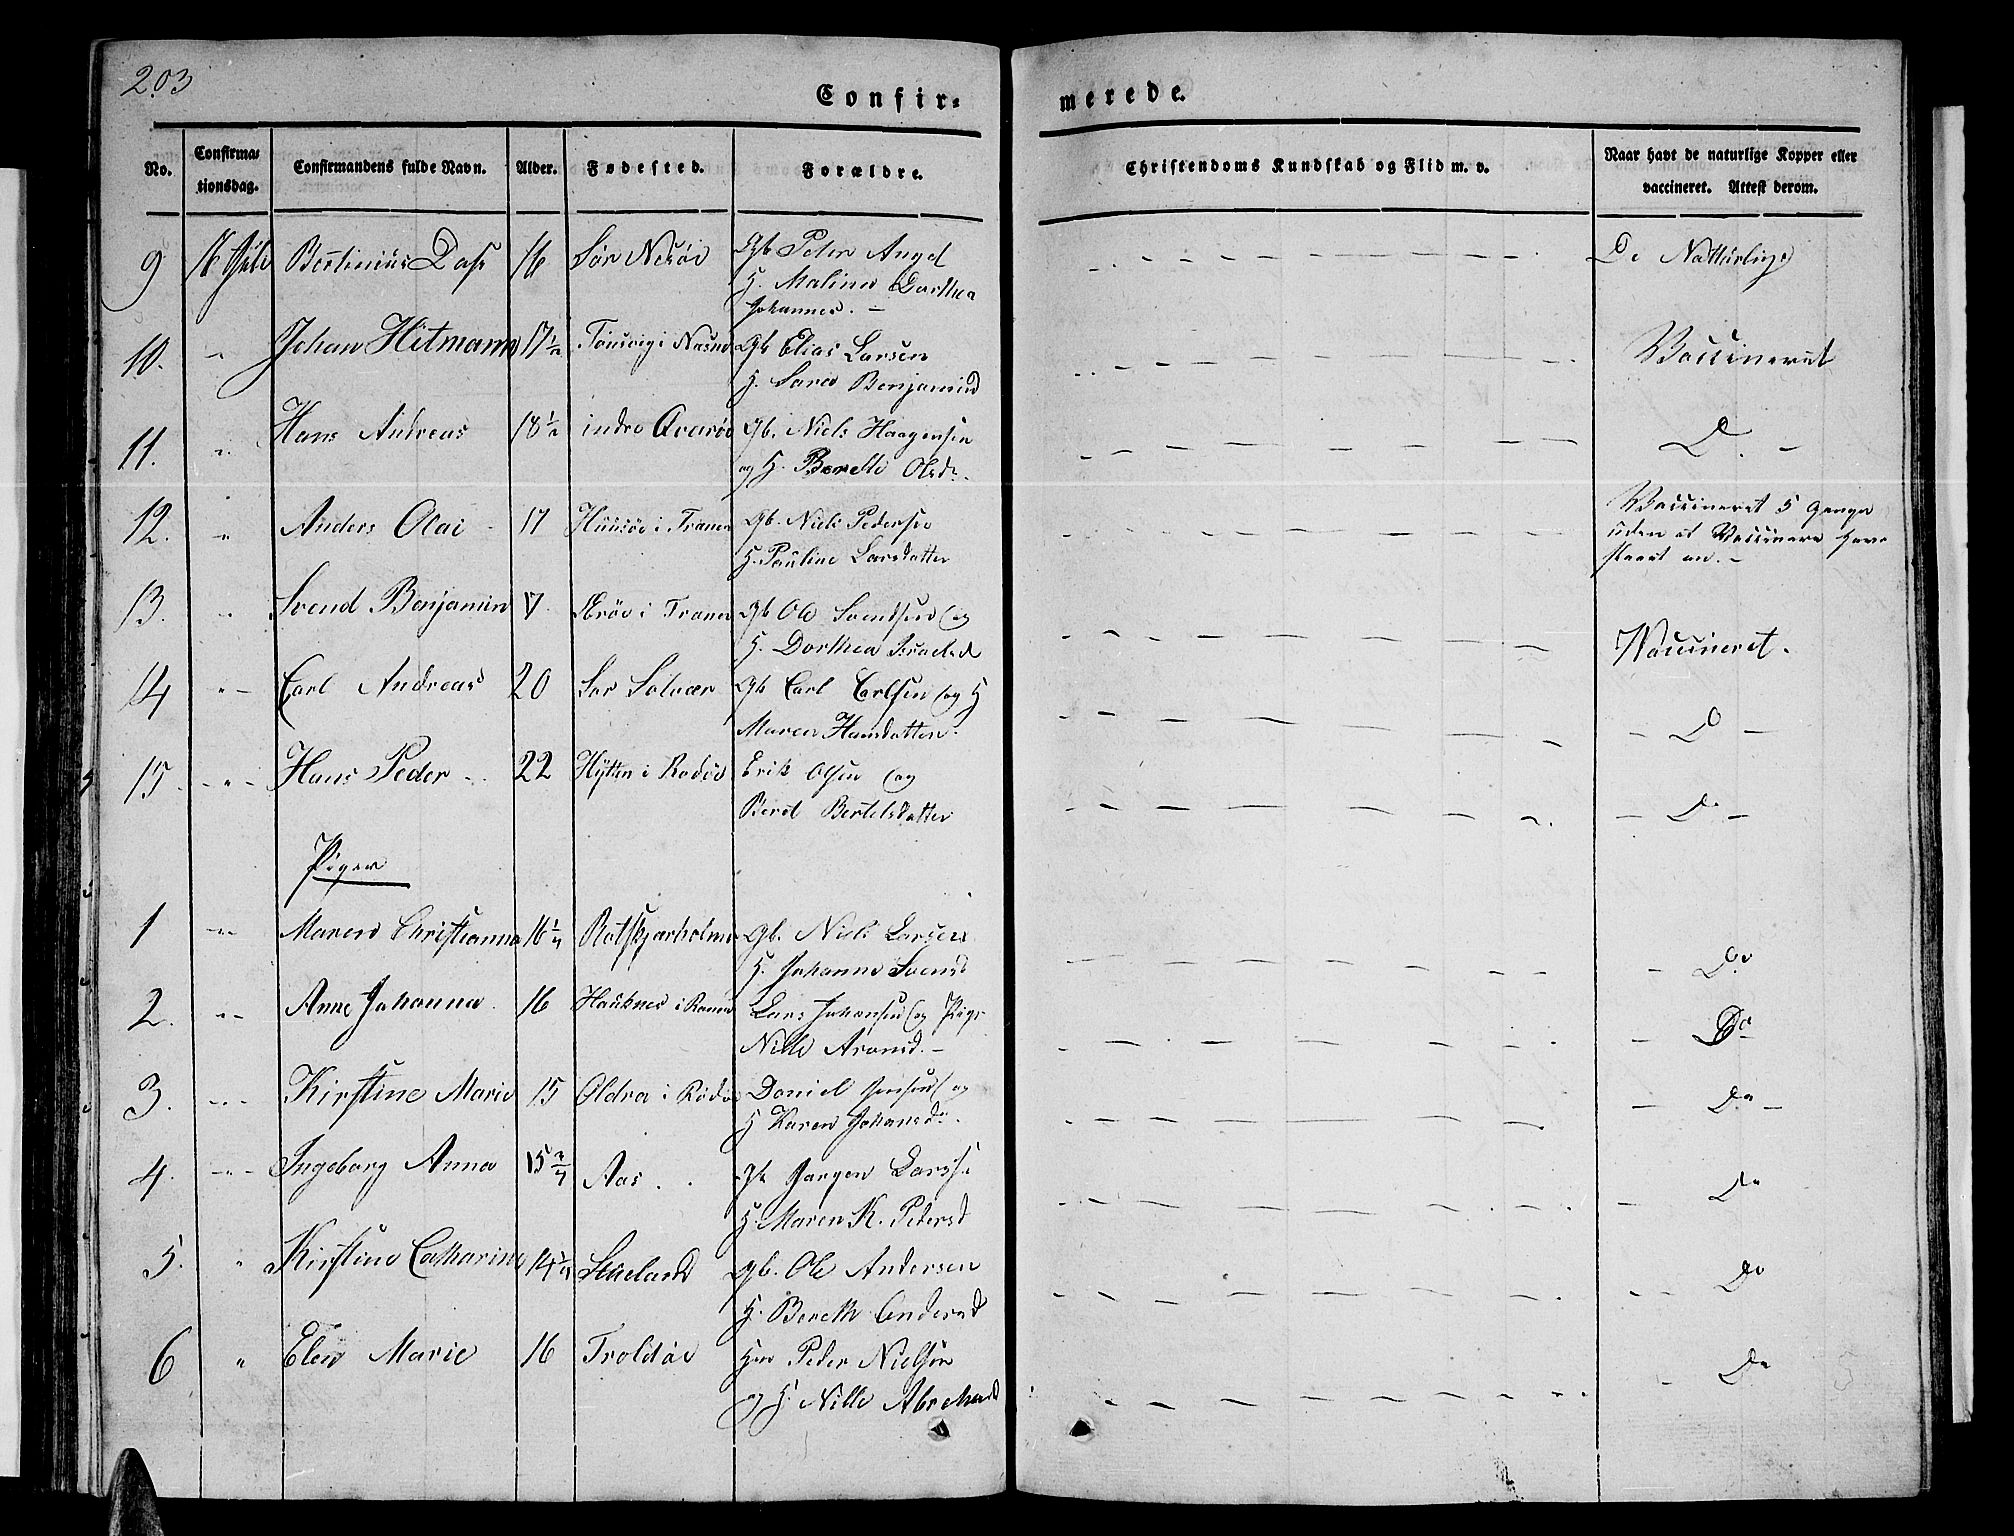 203
Confir-
merede.
No.
Confirma-
tionsdag.
Confirmandens fulde Navn.
Alder.
Fødested.
Forældre.
Christendoms Kundskab og Flid m. v.
Naar havt de naturlige Kopper eller
vaccineret. Attest derom.
9 Bertinius Dass 16 Sør Nesøe Gb Peter Angel De Natturlige
H. Malina Dorthea
Johannes. -
10. " Johan Hitmann 17½ i Næsne Gb Elias Larsen Vaccineret
H. Sara Benjamind
11. " Hans Andreas 18½ indre Qvarøe Gb. Niels Haagensen D. -
og H. Berethe Olsdr.
12. " Anders Olai 17 Huusøe i Træna Gb. Niels Pedersen Vaccineret 5 Gange
H. Pauline Larsdatter uden at Vaccinene have
slaaet an. -
13. " Svend Benjamin 17. i Træna Gb Ole Svendsen og Vaccineret.
H. Dorthea Israelsd
14 " - Carl Andreas 20 Sør Solvær Gb Carl Carlsen og H - D -
Maren Hansdatter.
15. - " - Hans Peder - 22 Hytten i Rødøe Erik Olsen og - D -
Beret Bertelsdatter
Piger
1 " Maren Christianna 16¼ Rotskjærholmen Gb. Niels Larsen - Do
H. Johanna Svensd
2. " Anne Johanna. 16 Hauknes i Ranen Lars Johansen og Pige - Do
Nille Aronsd. -
3. " Kirstine Marie 15 Oldra i Rødøe Daniel Jensen og - Do -
H Karen Johansdr.
4. " Ingeborg Anna 15 Aas. Gb Jørgen Larss. - Do
H. Maren K. Pedersd
5. " Kirstine Catharine 14¼ Stueland Gb. Ole Andersen - Do
H. Bereth Andersd
6 " Elen Marie 16 Troldøe Hm Peder Nielsen - Do
og H. Nille Abrahmsd